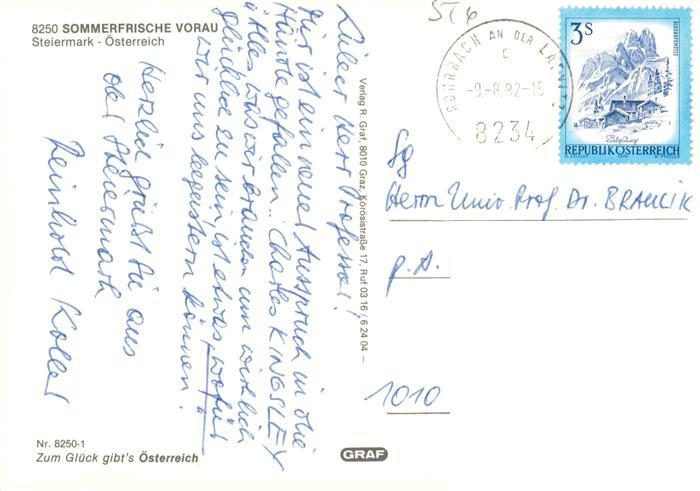 8250 SOMMERFRISCHE VORAU
Steiermark - Österreich
Lieber Herr Professor!
Mir ist ein neuer Ausspruch in die
Hände gefallen: Charles KINGSLEY
"Alles was wir brauchen um wirklich
glücklich zu sein, ist etwas, wofür
wir uns begeistern können."
Herzlich grüßt Sie aus
der Steiermark
Reinhold Koller
Nr. 8250-1
Zum Glück gibt's Österreich
Verlag R. Graf, 8010 Graz, Körösistraße 17, Ruf 03 16 / 6 24 04 —
GRAF
ROHRBACH AN DER LAFNITZ
C
-9.-8.82-15
8234
3S
BISCHOFSMÜTZE
Salzburg
REPUBLIK ÖSTERREICH
Sg
Herrn Univ. Prof. Dr. BRAUCIK
p. A.
1010